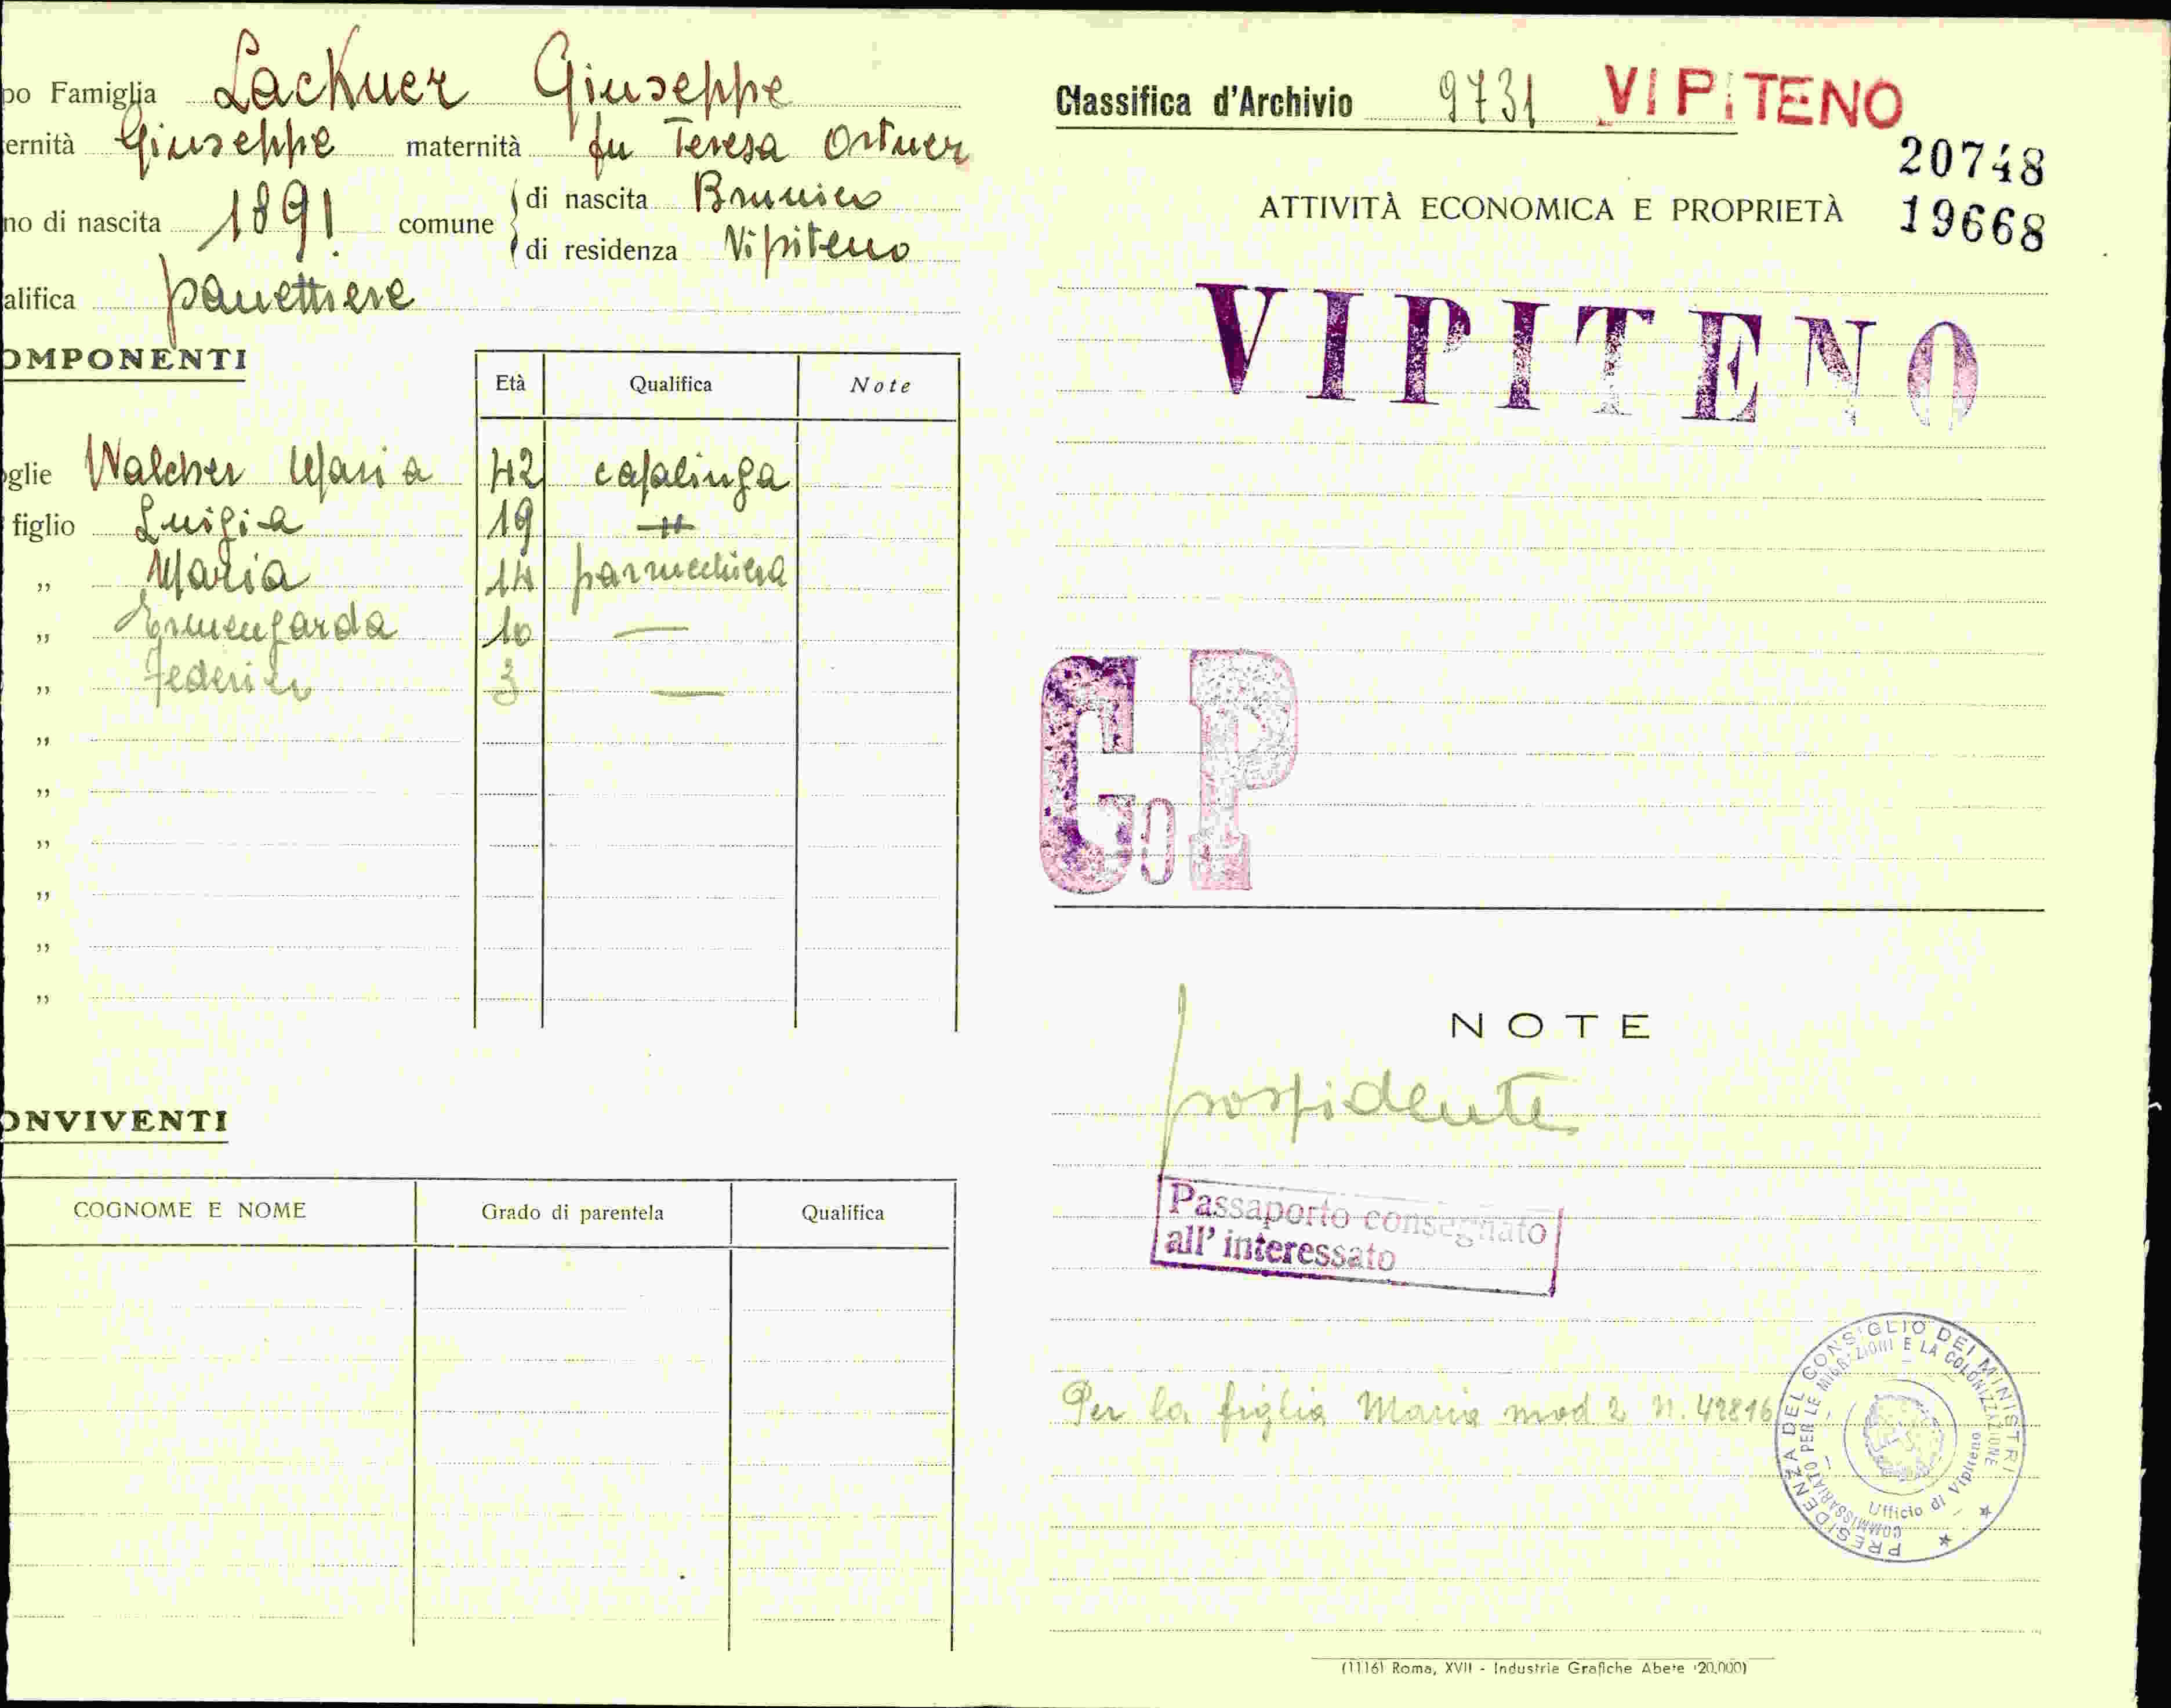 po Famiglia Lackner Giuseppe
ernità Giuseppe maternità fu Teresa Ortner
no di nascita 1891 comune di nascita Brunico
di residenza Vipiteno
alifica panettiere
OMPONENTI
Età Qualifica Note
oglie Walcher Maria 42 casalinga
figlio Luigia 19 "
" Maria 14 parrucchiera
" Ermengarda 10 —
" Federico 3 —
"
"
"
"
"
"
ONVIVENTI
COGNOME E NOME Grado di parentela Qualifica
Classifica d'Archivio 9731 VIPITENO
20748
ATTIVITÀ ECONOMICA E PROPRIETÀ 19668
VIPITENO
G O P
NOTE
possidente
Passaporto consegnato
all' interessato
Per la figlia Maria mod 2 n. 42816
PRESIDENZA DEL CONSIGLIO DEI MINISTRI
COMMISSARIATO PER LE MIGRAZIONI E LA COLONIZZAZIONE
Ufficio di Vipiteno
(1116) Roma, XVII - Industrie Grafiche Abete (20.000)